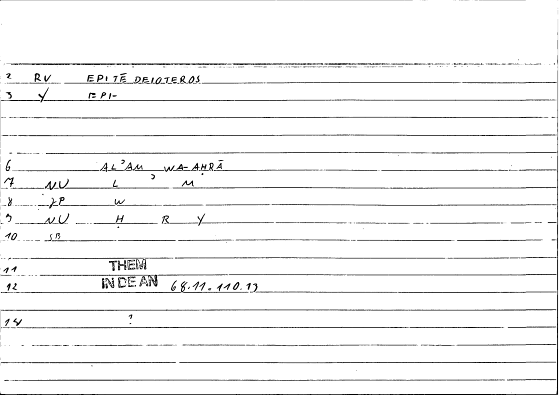 2 RV EPITĒ DEIOTEROS
3 Y EPI-
6 AL'AM WA-AHRĀ
7 NU L ' M
8 JP W
9 NU H R Y
10 SB
11 THEM
12 INDEAN 68.11.110.13
14 ?